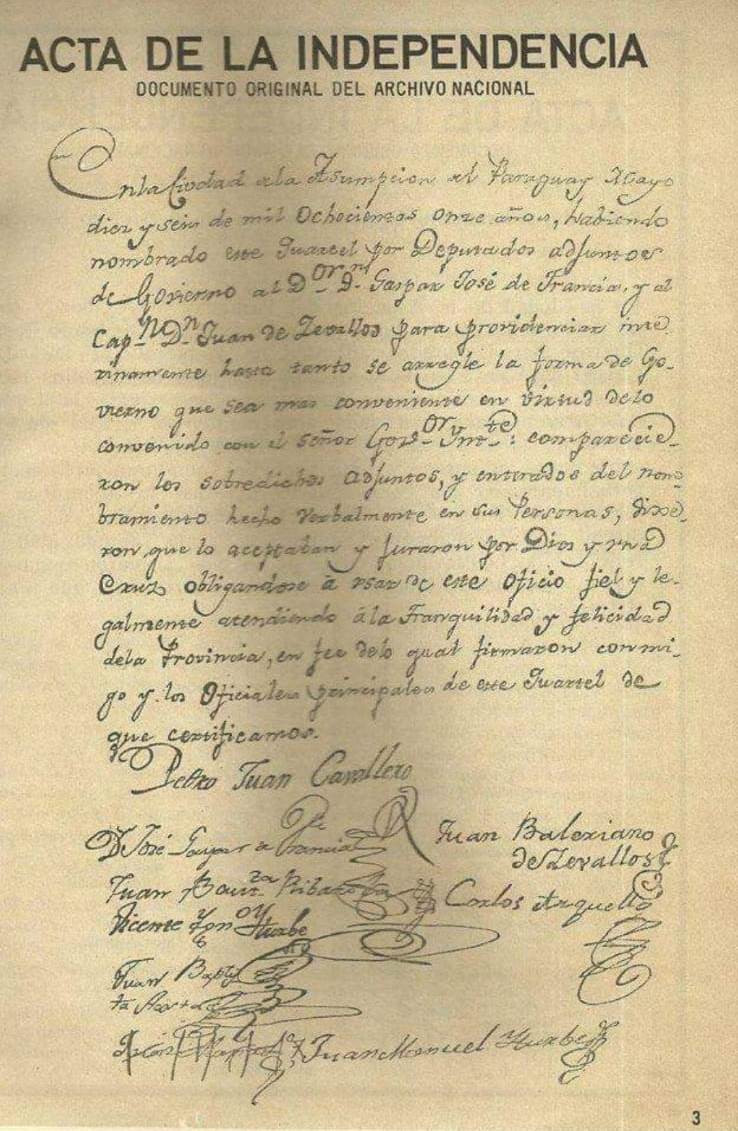 ACTA DE LA INDEPENDENCIA
DOCUMENTO ORIGINAL DEL ARCHIVO NACIONAL
En la Ciudad de la Asumpcion del Paraguay Mayo
diez y seis de mil Ochocientos onze años, habiendo
nombrado este Quartel por Deputados adjuntos
de Govierno al D.or D.n Gaspar José de Francia, y al
Cap.n D.n Juan de Zevallos para providenciar inte-
rinamente hasta tanto se arregle la forma de Go-
vierno que sea mas conveniente en virtud delo
convenido con el señor Gov.or Ynt.te: comparecie-
ron los sobredichos adjuntos, y enterados del nom-
bramiento hecho verbalmente en sus Personas, dixe-
ron que lo aceptaban y juraron por Dios y una
Cruz obligandose à usar de este Oficio fiel y le-
galmente atendiendo àla Tranquilidad y felicidad
dela Provincia, en fee delo qual firmaron conmi-
go y los Oficiales principales de este Quartel de
que certificamos.
Pedro Juan Cavallero
D José Gaspar de Francia
Juan Baleriano
de Zevallos
Juan Baut.ta Ribarola
Carlos Arguello
Vicente Yturbe
Juan Baptis
ta Acosta
Juan Manuel Yturbe
3